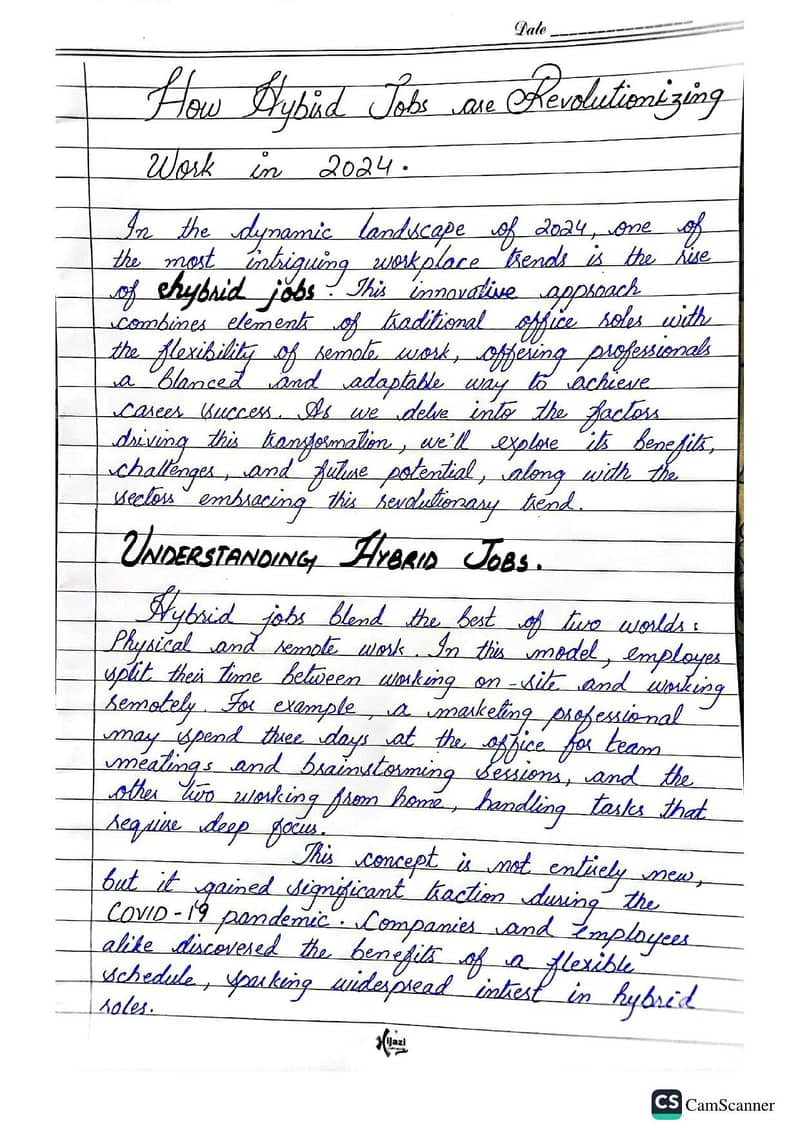 Date
How Hybrid Jobs are Revolutionizing
Work in 2024.
In the dynamic landscape of 2024, one of
the most intriguing workplace trends is the rise
of hybrid jobs. This innovative approach
combines elements of traditional office roles with
the flexibility of remote work, offering professionals
a blanced and adaptable way to achieve
career success. As we delve into the factors
driving this transformation, we'll explore its benefits,
challenges, and future potential, along with the
sectors embracing this revolutionary trend.
UNDERSTANDING HYBRID JOBS.
Hybrid jobs blend the best of two worlds:
Physical and remote work. In this model, employes
split their time between working on-site and working
remotely. For example, a marketing professional
may spend three days at the office for team
meatings and brainstorming sessions, and the
other two working from home, handling tasks that
require deep focus.
This concept is not entirely new,
but it gained significant traction during the
COVID-19 pandemic. Companies and employees
alike discovered the benefits of a flexible
schedule, sparking widespread intrest in hybrid
roles.
Hijazi
CS CamScanner